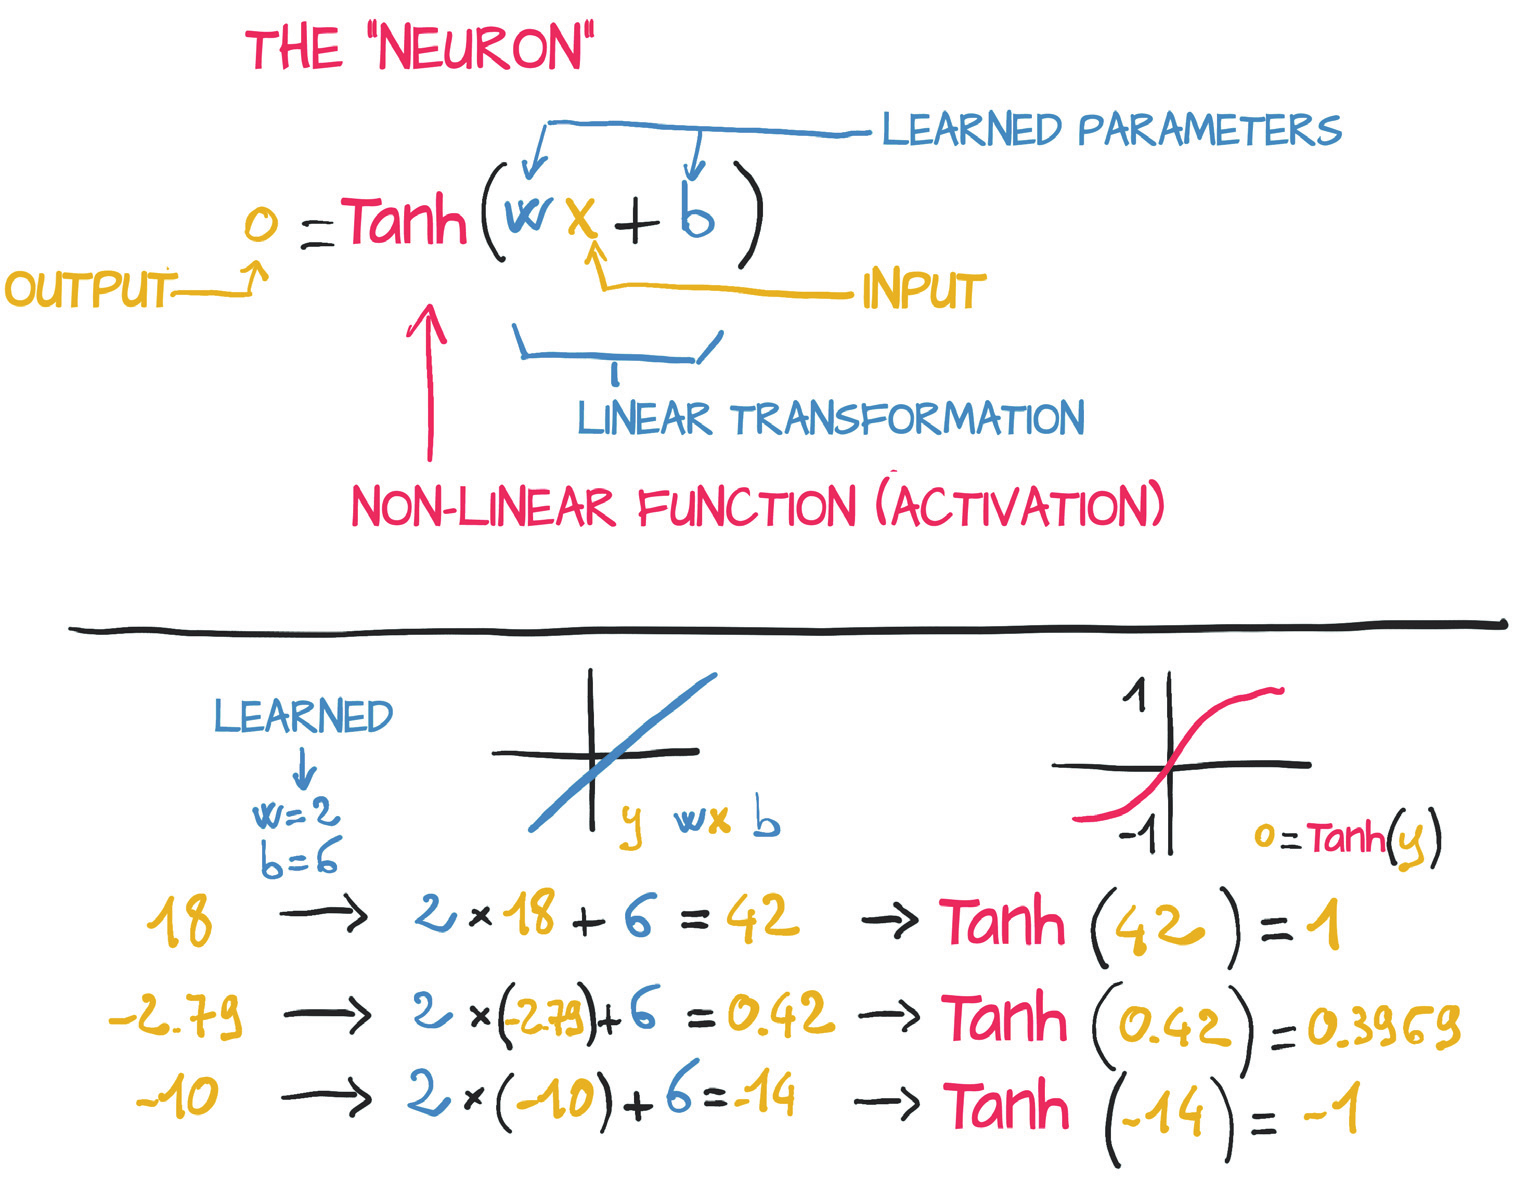 THE "NEURON"
LEARNED PARAMETERS
o = Tanh (w x + b)
OUTPUT
INPUT
LINEAR TRANSFORMATION
NON-LINEAR FUNCTION (ACTIVATION)
LEARNED
w=2
b=6
y wx b
1
-1
o=Tanh(y)
18 → 2 × 18 + 6 = 42 → Tanh (42) = 1
-2.79 → 2 ×(-2.79)+ 6 = 0.42 → Tanh (0.42) = 0.3969
-10 → 2 × (-10) + 6 = -14 → Tanh (-14) = -1